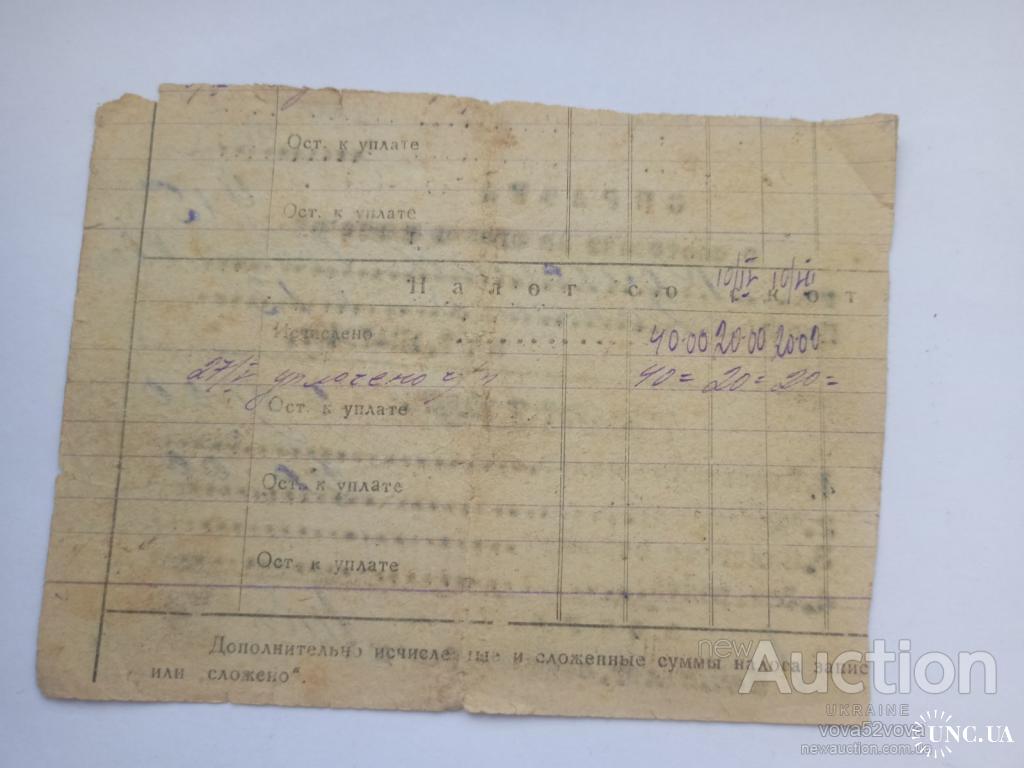 Ост. к уплате
Ост. к уплате
10/IV 10/VI
Налог со скот
Исчислено 40-00 20-00 20-00
27/V уплачено 40= 20= 20=
Ост. к уплате
Ост. к уплате
Ост. к уплате
Дополнительно исчисленные и сложенные суммы налога запис
или сложено".
newAuction
UKRAINE
vova52vova
newauction.com.ua
UNC.UA